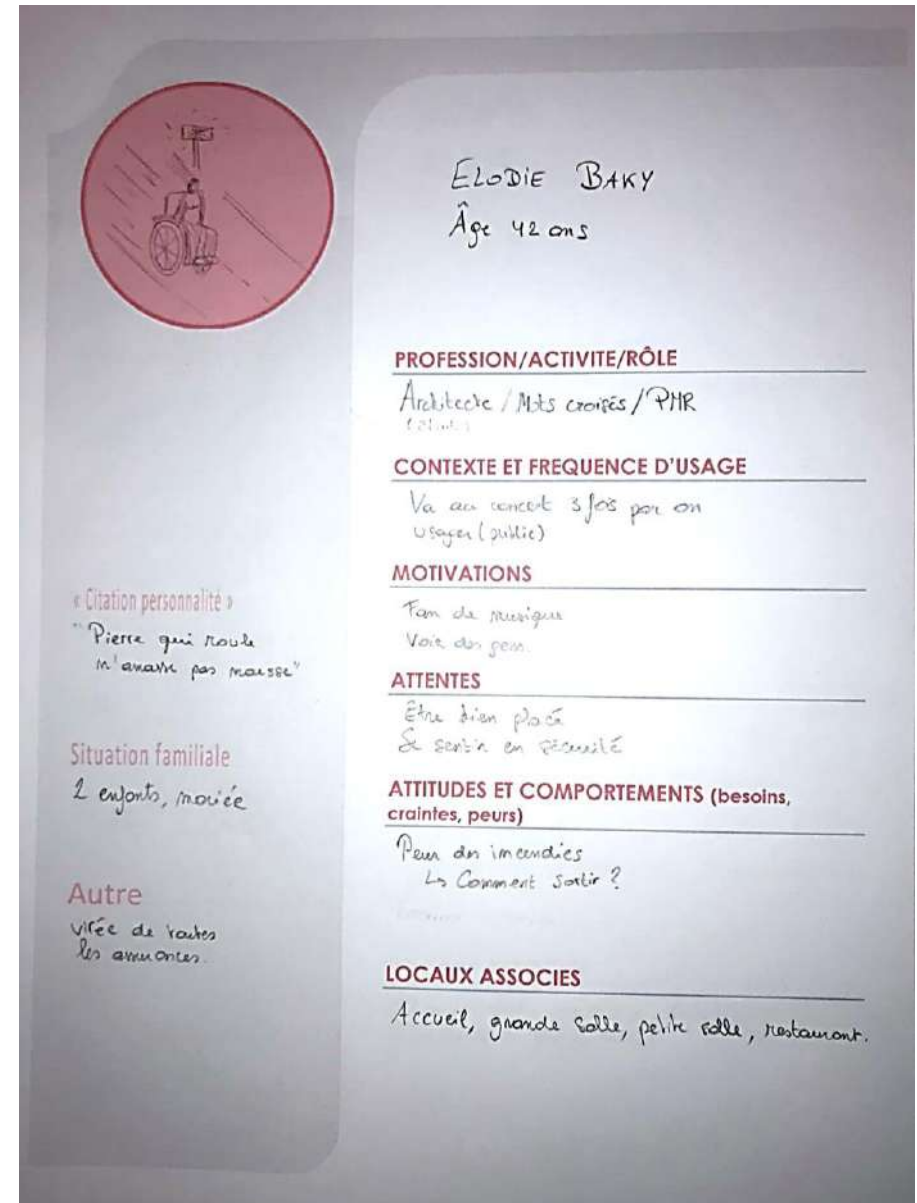 ELODIE BAKY
Âge 42 ans
PROFESSION/ACTIVITE/RÔLE
Architecte / Mots croisés / PMR
CONTEXTE ET FREQUENCE D'USAGE
Va au concert 3 fois par an
usager (public)
MOTIVATIONS
Fan de musique
Voir des gens.
ATTENTES
Être bien placé
Se sentir en sécurité
ATTITUDES ET COMPORTEMENTS (besoins,
craintes, peurs)
Peur des incendies
↳ Comment sortir ?
LOCAUX ASSOCIES
Accueil, grande salle, petite salle, restaurant.
« Citation personnalité »
"Pierre qui roule
n'amasse pas mousse"
Situation familiale
2 enfants, mariée
Autre
virée de toutes
les annonces.